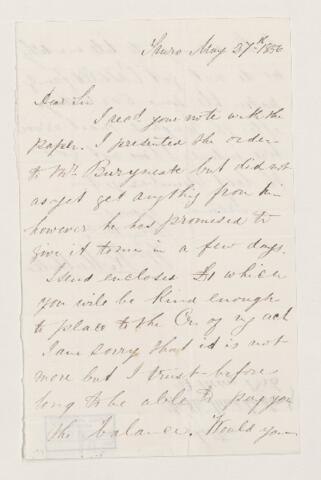 Truro May 27th 1856
Dear Sir
I recd your note with the
paper. I presented the order
to Mr. but did not
as yet get anything from him
however he has promised to
give it to me in a few days.
I send enclosed which
you will be kind enough
to place to the Cr. of my act
I am sorry that it is not
more but I trust before
long to be able to pay you
the balance. Would you